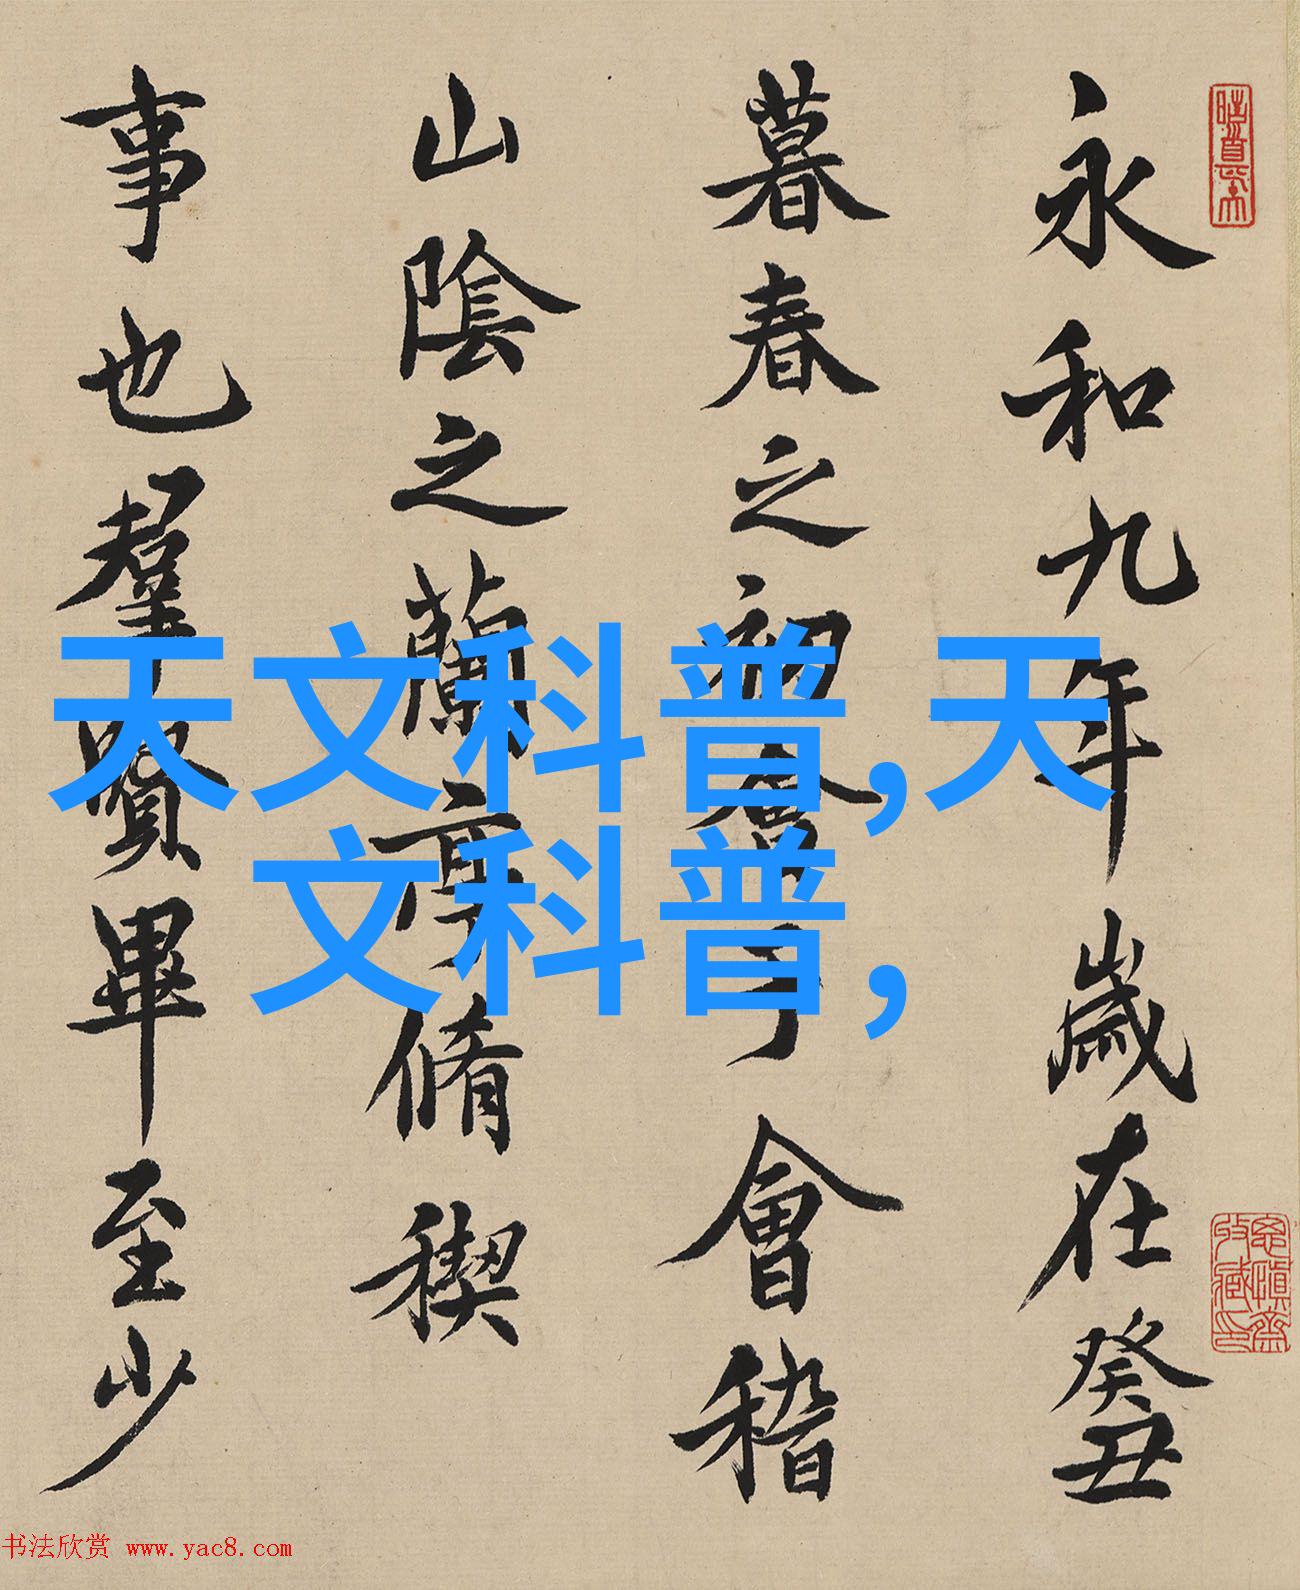 永和九年歲在癸丑
暮春之初會于會稽
山陰之蘭亭脩稧
事也羣賢畢至少
天文科普,天
文科普,
书法欣赏 www.yac8.com